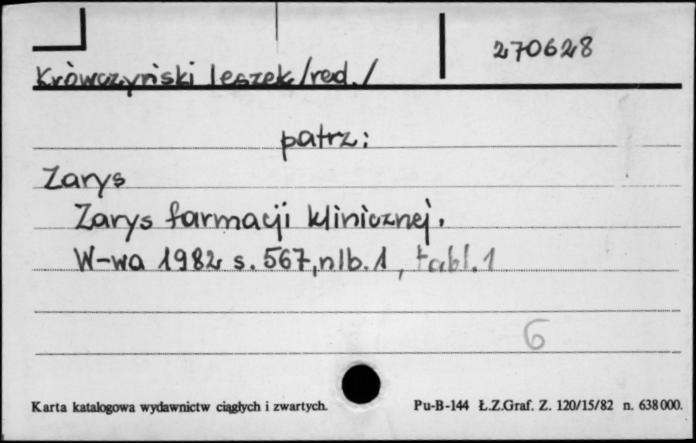 270628
Krówczyński Leszek/red./
patrz:
Zarys
Zarys farmacji klinicznej.
W-wa 1982 s. 567, nlb. 1, tabl. 1
6
Karta katalogowa wydawnictw ciągłych i zwartych. Pu-B-144 Ł.Z.Graf. Z. 120/15/82 n. 638000.